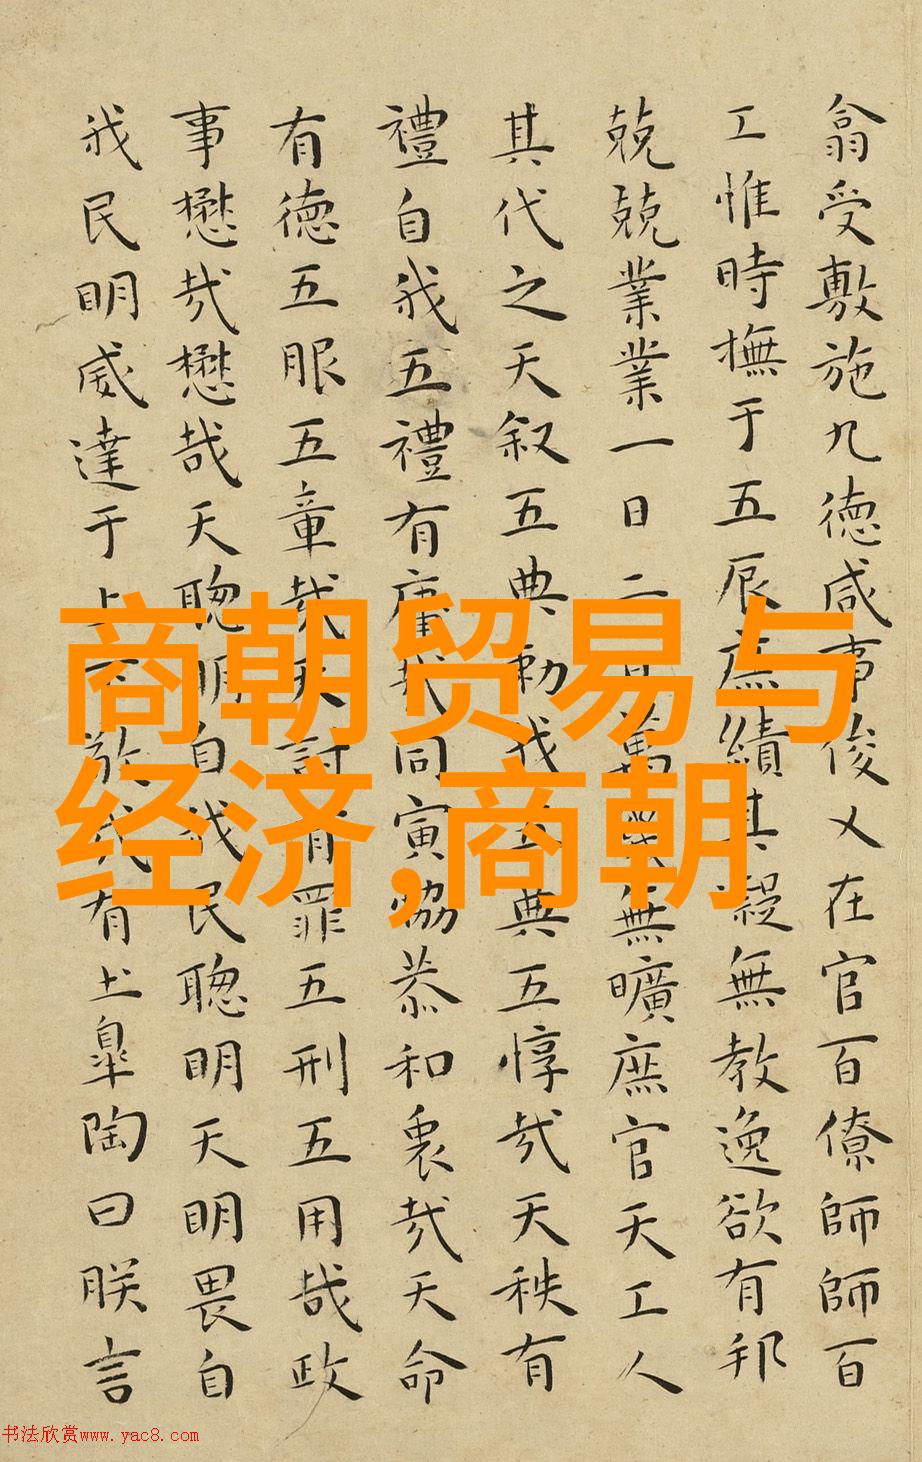 翕受敷施九德咸事俊乂在官百僚師師百
工惟時撫于五辰庶績其凝無教逸欲有邦
兢兢業業一日二日萬幾無曠庶官天工人
其代之天叙五典勑我五典五惇哉天秩有
禮自我五禮有庸哉同寅恊恭和衷哉天命
有德五服五章哉天討有罪五刑五用哉政
事懋哉懋哉天聰明自我民聰明天明畏自
我民明威達于上下敬哉有土皐陶曰朕言
商朝贸易与
经济,商朝
书法欣赏www.yac8.com